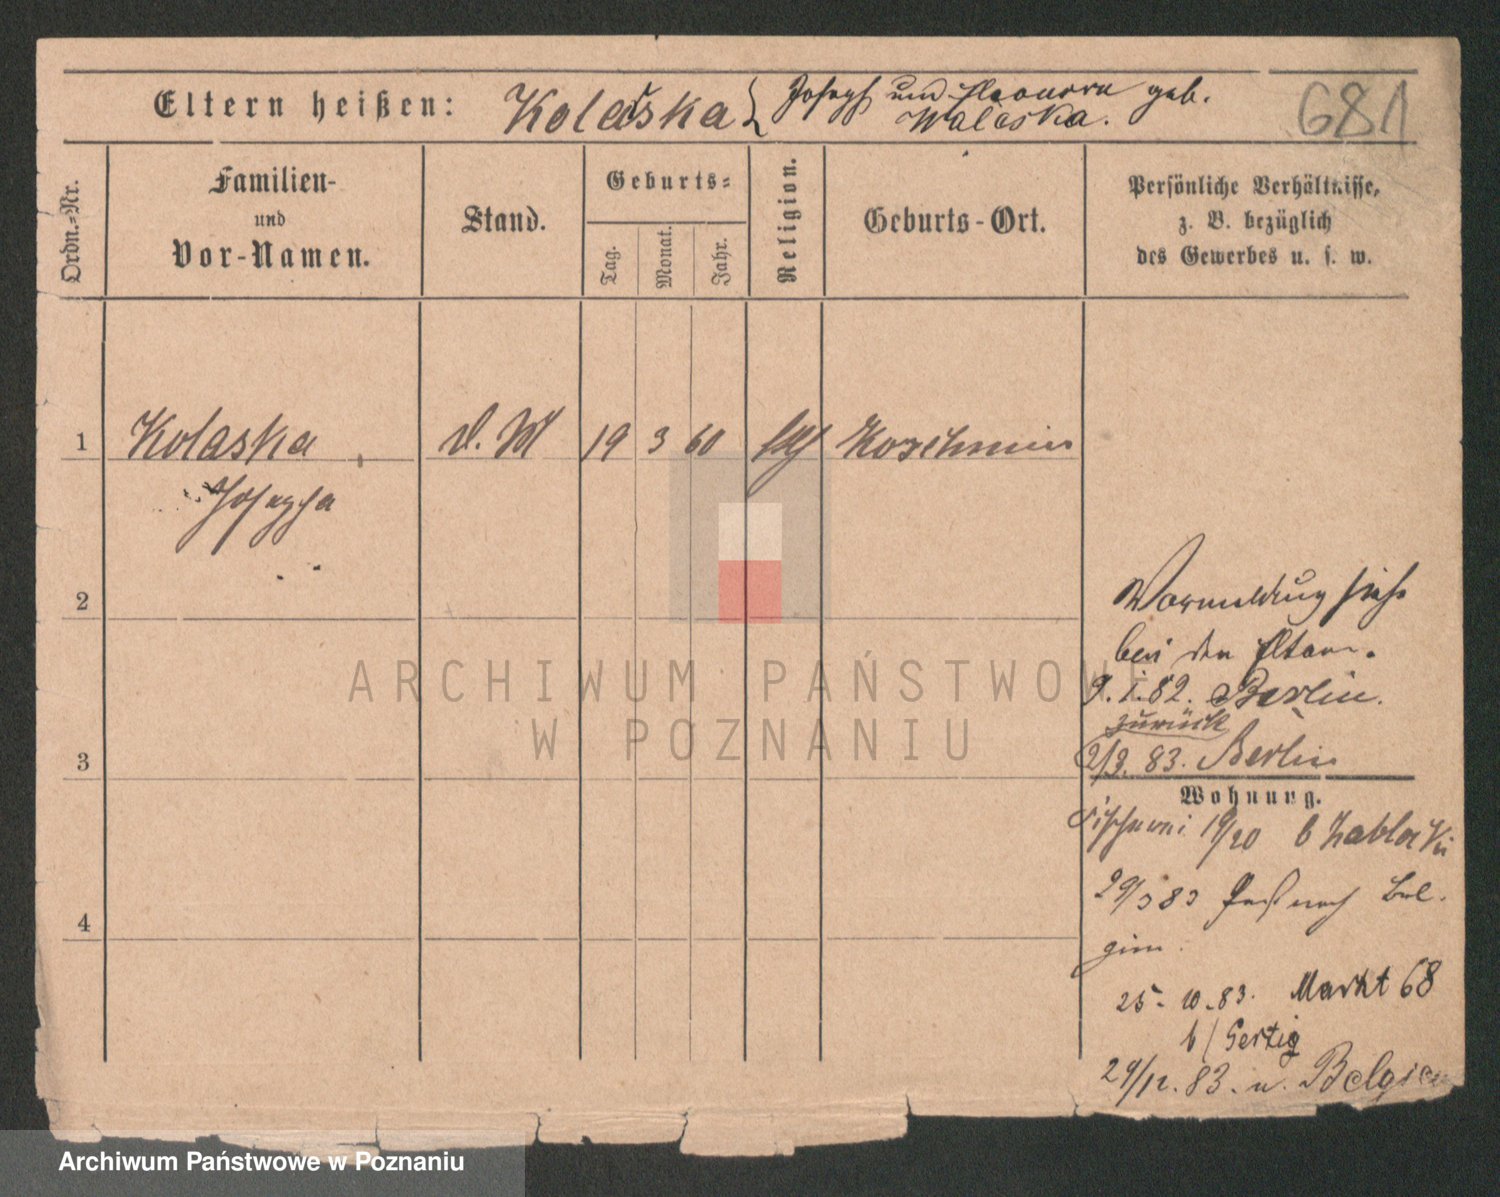 Eltern heißen: Kolaska { Joseph und Eleonora geb.
Walaska.
681
Ordn.-Nr.
Familien-
und
Vor-Namen.
Stand.
Geburts-
Tag.
Monat.
Jahr.
Religion.
Geburts-Ort.
Persönliche Verhältnisse,
z. B. bezüglich
des Gewerbes u. s. w.
1 Kolaska d. M 19 3 60 kth Koschmin
Josepha
2
3
4
Vormeldung siehe
bei den Eltern.
9. 1. 82. Berlin.
zurück
2/3. 83. Berlin
Wohnung.
Fischerei 19/20 b Zablocki
29/3 83 Paß nach Bel-
gien.
25. 10. 83. Markt 68
b/ Gertig
29/12. 83. n. Belgien
ARCHIWUM PAŃSTWOWE
W POZNANIU
Archiwum Państwowe w Poznaniu